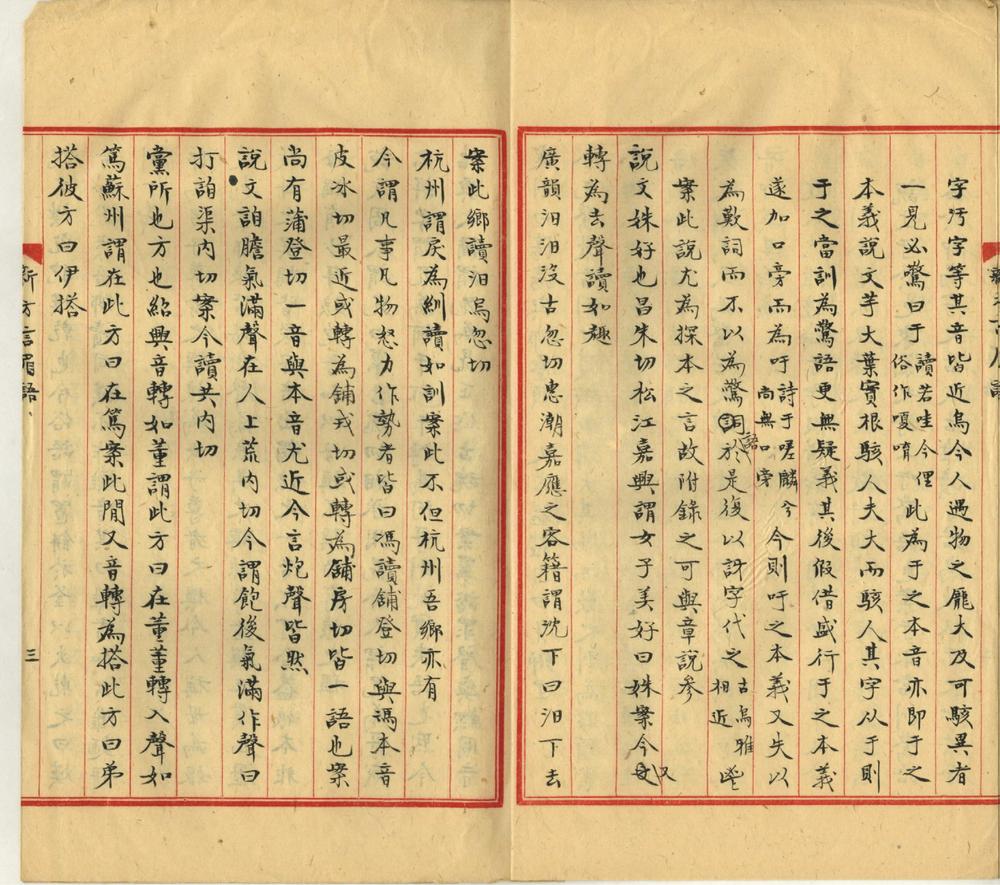 字汙字等其音皆近烏今人遇物之龐大及可駭異者
一見必驚曰于讀若哇今俚俗作嗄唷此為于之本音亦即于之
本義說文芋大葉實根駭人夫大而駭人其字从于則
于之當訓為驚語更無疑義其後假借盛行于之本義
遂加口旁而為吁詩于嗟麟兮尚無口旁今則吁之本義又失以
為歎詞而不以為驚語於是復以訝字代之古烏雅相近
案此說尤為探本之言故附錄之可與章說參
說文姝好也昌朱切松江嘉興謂女子美好曰姝案今又
轉為去聲讀如趣
廣韻汩汩沒古忽切忠潮嘉應之客籍謂沈下曰汩下去
案此鄉讀汩烏忽切
杭州謂戾為紃讀如訓案此不但杭州吾鄉亦有
今謂凡事凡物怒力作勢者皆曰馮讀舖登切與馮本音
皮冰切最近或轉為舖戎切或轉為舖房切皆一語也案
尚有蒲登切一音與本音尤近今言炮聲皆然
說文詯膽氣滿聲在人上荒內切今謂飽後氣滿作聲曰
打詯渠內切案今讀共內切
黨所也方也紹興音轉如董謂此方曰在董董轉入聲如
篤蘇州謂在此方曰在篤案此閒又音轉為搭此方曰弟
搭彼方曰伊搭
新方言眉語
三